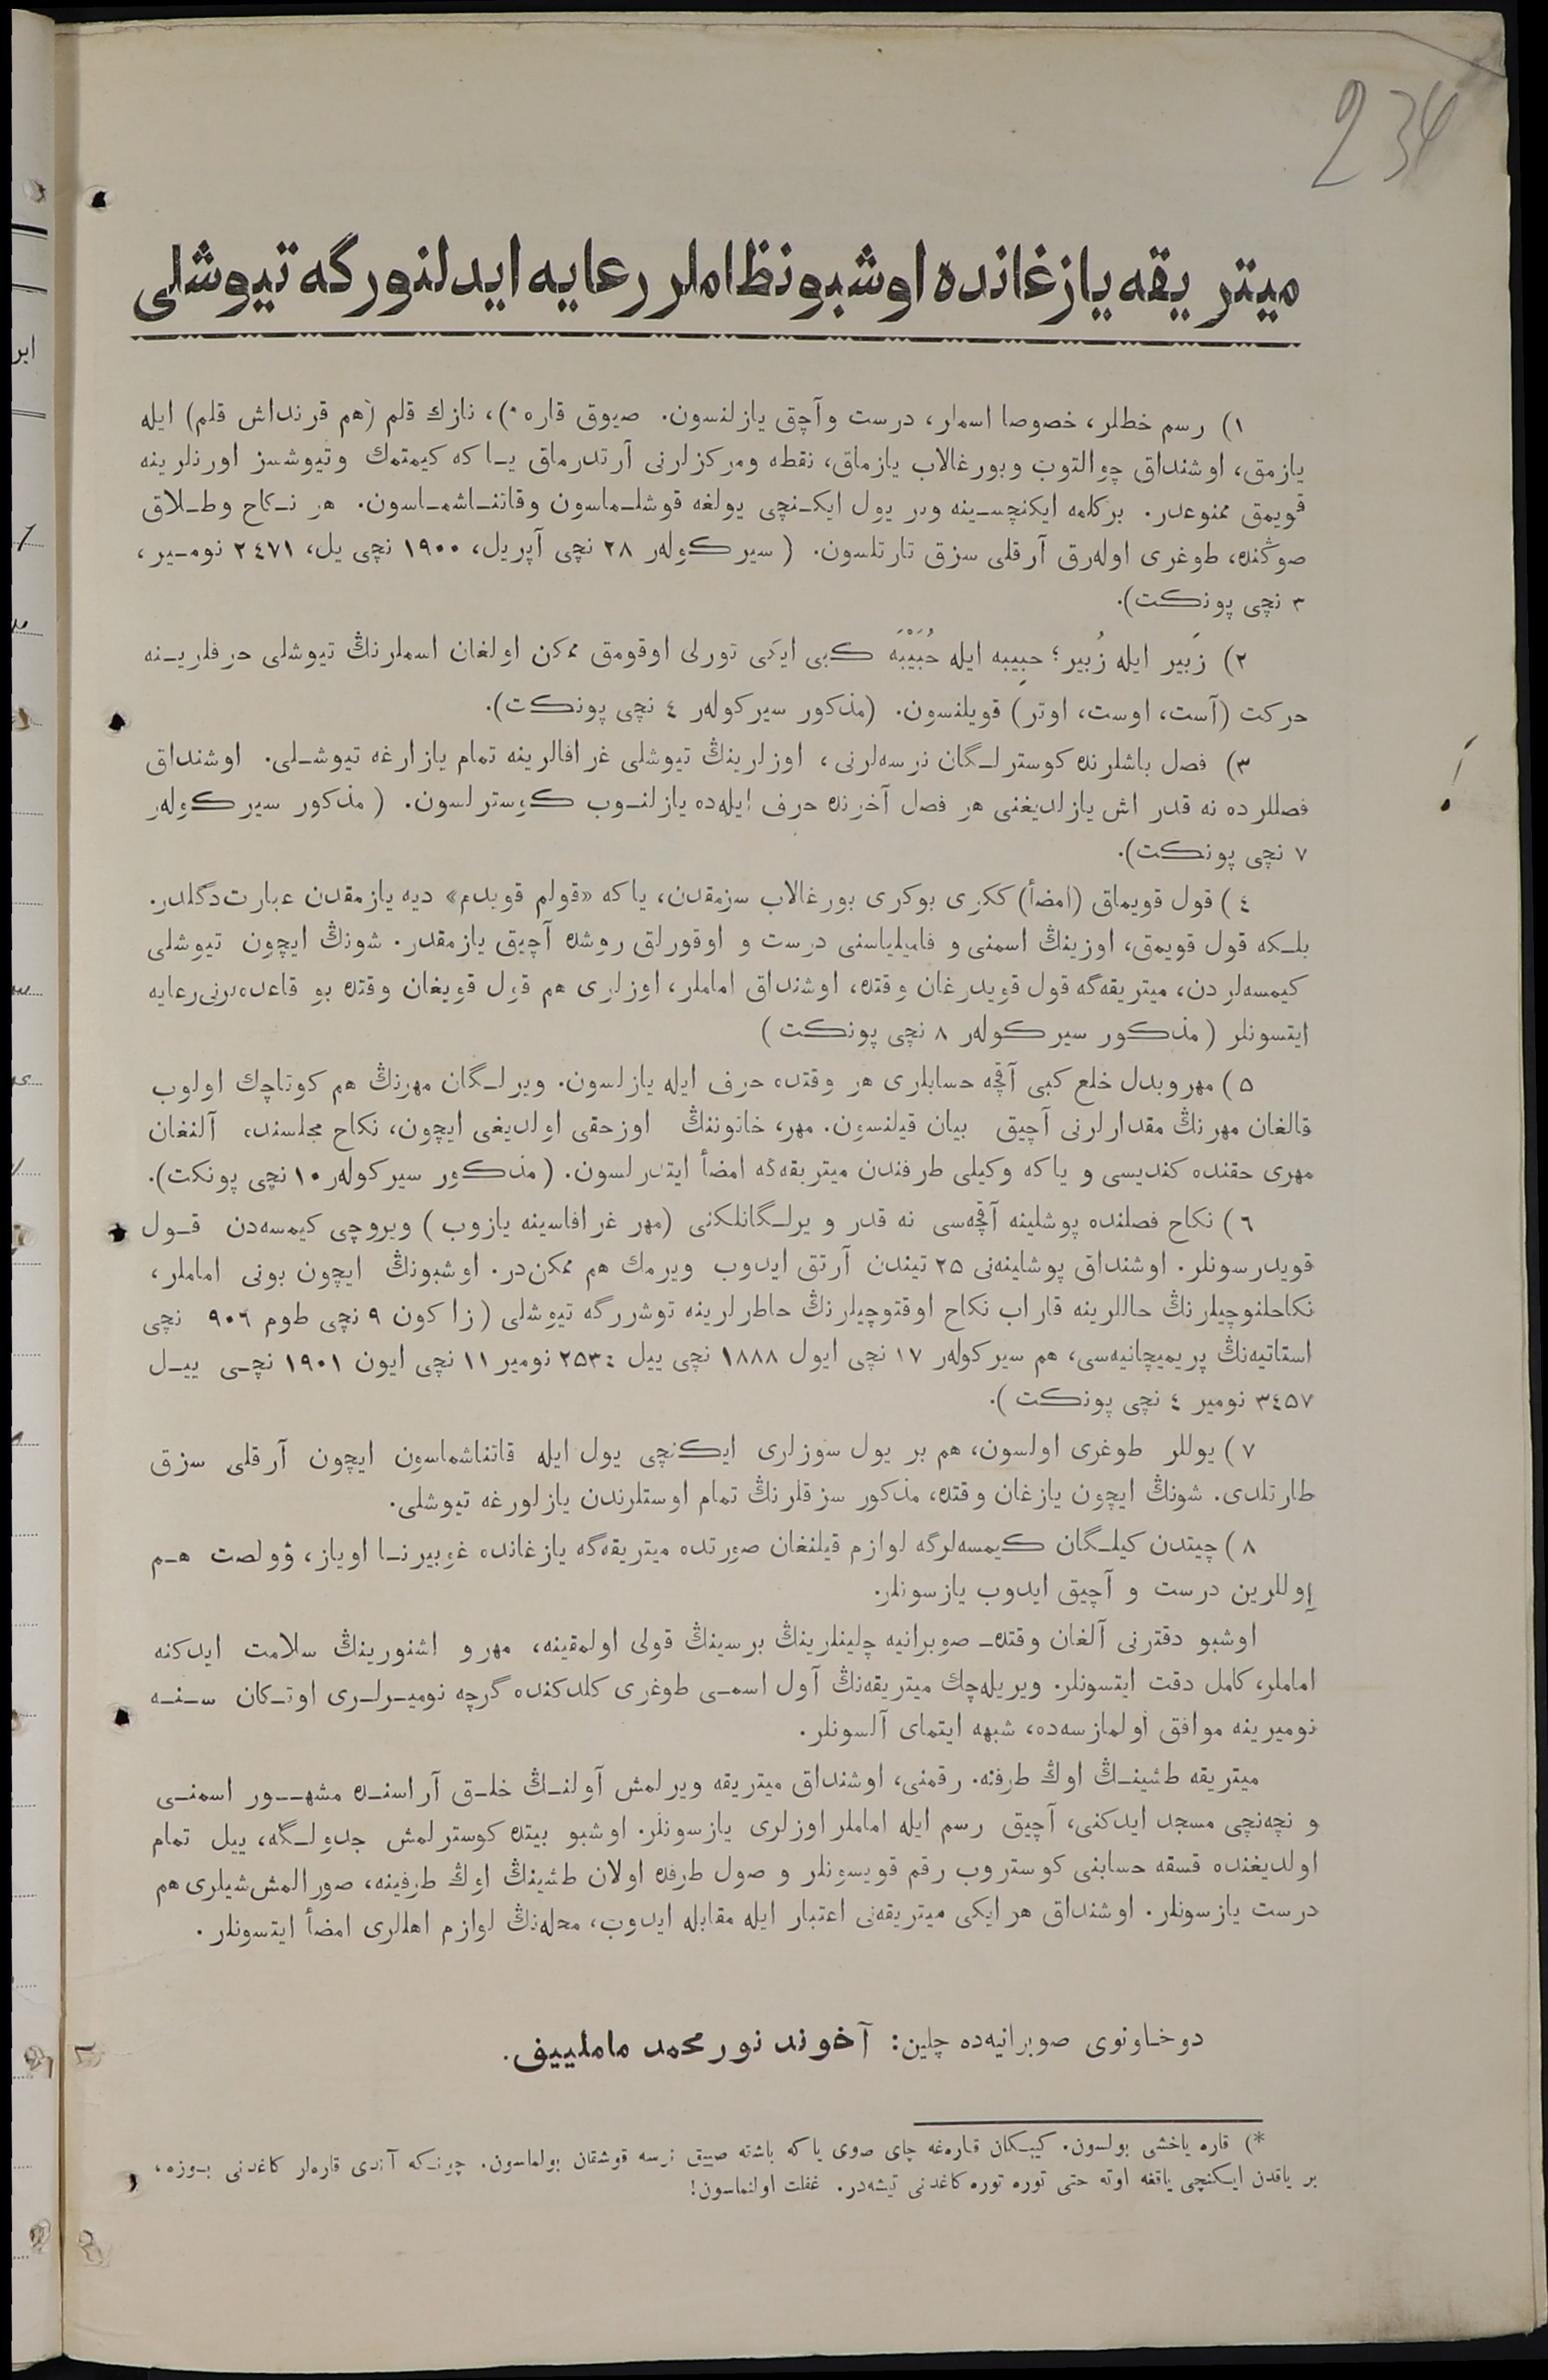 234
ميتريقه يازغانده اوشبو نظاملر رعايه ايدلنورگه تيوشلى
١) رسم خطلر، خصوصا اسملر، درست وآچق يازلنسون. صيوق قاره *)، نازك قلم (هم قرنداش قلم) ايله
يازمق، اوشنداق چوالتوب وبورغالاب يازماق، نقطه ومركزلرنى آرتدرماق يا كه كيمتمك وتيوشسز اورنلرينه
قويمق ممنوعدر. بركلمه ايكنچسينه وبر يول ايكنچى يولغه قوشلماسون وقاتناشماسون. هر نكاح وطلاق
صوڭنده، طوغرى اولەرق آرقلى سزق تارتلسون. (سيركولەر ٢٨ نچى آپريل، ١٩٠٠ نچى يل، ٢٤٧١ نومير،
٣ نچى پونكت).
٢) زَبير ايله زُبير؛ حبِيبه ايله حُبَيْبَه كبى ايكى تورلى اوقومق ممكن اولغان اسملرنڭ تيوشلى حرفلرينه
حركت (آست، اوست، اوتر) قويلنسون. (مذكور سيركولەر ٤ نچى پونكت).
٣) فصل باشلرنده كوسترلگان نرسەلرنى، اوزلرينڭ تيوشلى غرافالرينه تمام يازارغه تيوشلى. اوشنداق
فصللرده نه قدر اش يازلديغنى هر فصل آخرنده حرف ايلەده يازلنوب كوسترلسون. (مذكور سيركولەر
٧ نچى پونكت).
٤) قول قويماق (امضأ) ككرى بوكرى بورغالاب سزمقدن، ياكه «قولم قويدم» ديه يازمقدن عبارت دگلدر.
بلكه قول قويمق، اوزينڭ اسمنى و فاميلياسنى درست و اوقورلق روشده آچيق يازمقدر. شونڭ ايچون تيوشلى
كيمسەلردن، ميتريقەگه قول قويدرغان وقتده، اوشنداق اماملر، اوزلرى هم قول قويغان وقتده بو قاعدەلرنى رعايه
ايتسونلر (مذكور سيركولەر ٨ نچى پونكت)
٥) مهر وبدل خلع كبى آقچه حسابلرى هر وقتده حرف ايله يازلسون. ويرلگان مهرنڭ هم كوتاچك اولوب
قالغان مهرنڭ مقدارلرنى آچيق بيان قيلنسون. مهر، خاتوننڭ اوزحقى اولديغى ايچون، نكاح مجلسنده آلنغان
مهرى حقنده كنديسى و ياكه وكيلى طرفندن ميتريقەگه امضأ ايتدرلسون. (مذكور سيركولەر ١٠ نچى پونكت).
٦) نكاح فصلنده پوشلينه آقچەسى نه قدر ويرلگانلكنى (مهر غرافاسينه يازوب) ويروچى كيمسەدن قول
قويدرسونلر. اوشنداق پوشلينەنى ٢٥ تيندن آرتق ايدوب ويرمك هم ممكن در. اوشبونڭ ايچون بونى اماملر،
نكاحلنوچيلرنڭ حاللرينه قاراب نكاح اوقتوچيلرنڭ خاطرلرينه توشررگه تيوشلى (زاكون ٩ نچى طوم ٩٠٦ نچى
استاتيەنڭ پريميچانيەسى، هم سيركولەر ١٧ نچى ايول ١٨٨٨ نچى ييل ٢٥٣٤ نومير ١١ نچى ايون ١٩٠١ نچى ييل
٣٤٥٧ نومير ٤ نچى پونكت).
٧) يوللر طوغرى اولسون، هم بر يول سوزلرى ايكنچى يول ايله قاتناشماسون ايچون آرقلى سزق
طارتلدى. شونڭ ايچون يازغان وقتده، مذكور سزقلرنڭ تمام اوستلرندن يازلورغه تيوشلى.
٨) چيتدن كيلگان كيمسەلرگه لوازم قيلنغان صورتده ميتريقەگه يازغانده غوبيرنا اوياز، ۋولصت هم
اوللرين درست و آچيق ايدوب يازسونلر.
اوشبو دفترنى آلغان وقتده صوبرانيه چلينلرينڭ برسينڭ قولى اولمقينه، مهر و اشنورينڭ سلامت ايدكنه
اماملر، كامل دقت ايتسونلر. ويريلەچك ميتريقەنڭ آول اسمى طوغرى كلدكنده گرچه نوميرلرى اوتكان سنه
نوميرينه موافق اولمازسەده، شبهه ايتماى آلسونلر.
ميتريقه طشينڭ اوڭ طرفنه. رقمنى، اوشنداق ميتريقه ويرلمش آولنڭ خلق آراسنده مشهور اسمنى
و نچەنچى مسجد ايدكنى، آچيق رسم ايله اماملر اوزلرى يازسونلر. اوشبو بيتده كوسترلمش جدولگه، ييل تمام
اولديغنده قسقه حسابنى كوستروب رقم قويسونلر و صول طرفده اولان طشينڭ اوڭ طرفينه، صورالمش شيلرى هم
درست يازسونلر. اوشنداق هر ايكى ميتريقەنى اعتبار ايله مقابله ايدوب، محلەنڭ لوازم اهللرى امضأ ايتسونلر.
دوخاونوى صوبرانيەده چلين: آخوند نور محمد ماملييف.
*) قاره ياخشى بولسون. كيبكان قارەغه چاى صوى ياكه باشته صييق نرسه قوشقان بولماسون. چونكه آندى قارەلر كاغدنى بوزه،
بر ياقدن ايكنچى ياقغه اوته حتى توره توره كاغدنى تيشەدر. غفلت اولنماسون!